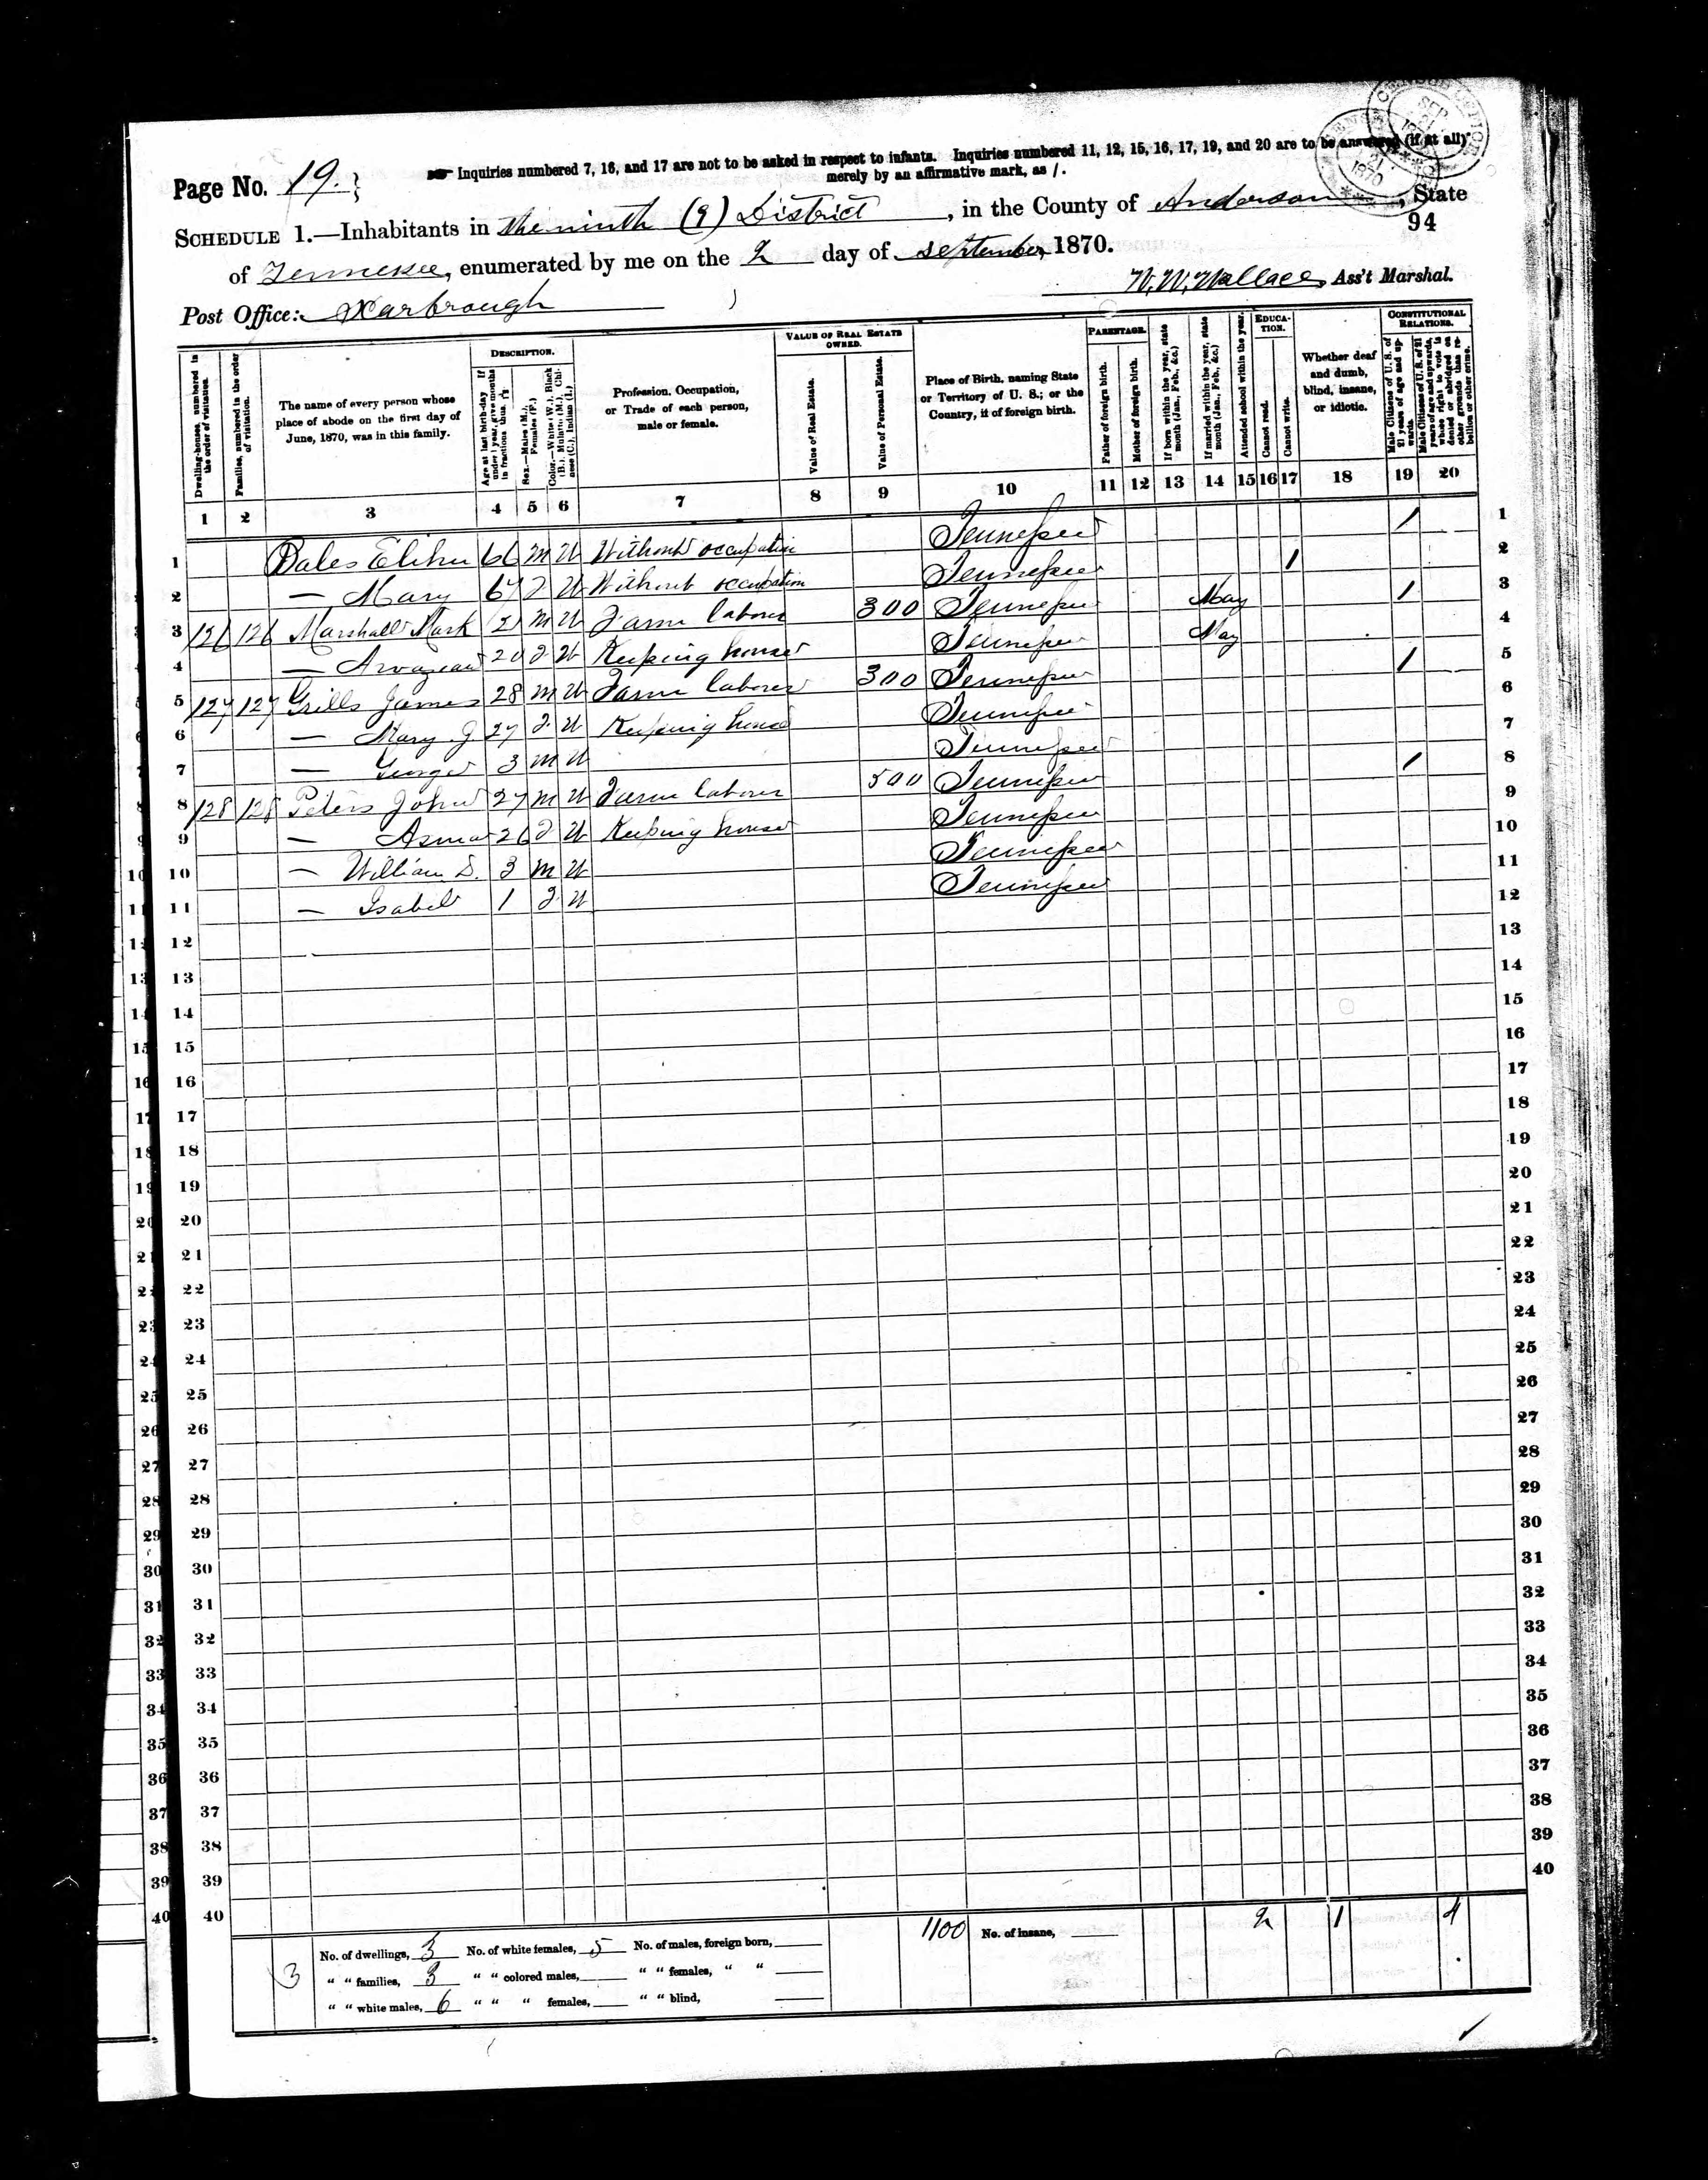 Page No. 19.
Inquiries numbered 7, 16, and 17 are not to be asked in respect to infants. Inquiries numbered 11, 12, 15, 16, 17, 19, and 20 are to be answered (if at all)
merely by an affirmative mark, as /.
SCHEDULE 1.—Inhabitants in the ninth (9) District, in the County of Anderson, State
94
of Tennessee, enumerated by me on the 2 day of September, 1870.
Post Office:
W. W. Wallace, Ass't Marshal.
Dwelling-houses, numbered in the order of visitation.
Families, numbered in the order of visitation.
The name of every person whose place of abode on the first day of June, 1870, was in this family.
DESCRIPTION.
Age at last birth-day. If under 1 year, give months in fractions, thus,
Sex.—Males (M.), Females (F.)
Color.—White (W.), Black (B.), Mulatto (M.), Chinese (C.), Indian (I.)
Profession, Occupation, or Trade of each person, male or female.
VALUE OF REAL ESTATE OWNED.
Value of Real Estate.
Value of Personal Estate.
Place of Birth, naming State or Territory of U. S.; or the Country, if of foreign birth.
PARENTAGE.
Father of foreign birth.
Mother of foreign birth.
If born within the year, state month (Jan., Feb., &c.)
If married within the year, state month (Jan., Feb., &c.)
Attended school within the year.
EDUCATION.
Cannot read.
Cannot write.
Whether deaf and dumb, blind, insane, or idiotic.
CONSTITUTIONAL RELATIONS.
Male Citizens of U. S. of 21 years of age and upwards.
Male Citizens of U. S. of 21 years of age and upwards, whose right to vote is denied or abridged on other grounds than rebellion or other crime.
1 2 3 4 5 6 7 8 9 10 11 12 13 14 15 16 17 18 19 20
1 Bales Elihu 66 M W Without occupation Tennessee / 1
2 — Mary 67 F W Without occupation Tennessee 1 2
3 126 126 Marshall Mark 21 M W Farm laborer 300 Tennessee May 1 3
4 — 20 F W Keeping house Tennessee May 4
5 127 127 Grills James 28 M W Farm laborer 300 Tennessee 1 5
6 — Mary J 27 F W Keeping house Tennessee 6
7 — George 3 M W Tennessee 7
8 128 128 Peters John 27 M W Farm laborer 500 Tennessee 1 8
9 — 26 F W Keeping house Tennessee 9
10 — William D. 3 M W Tennessee 10
11 — Isabel 1 F W Tennessee 11
12 12
13 13
14 14
15 15
16 16
17 17
18 18
19 19
20 20
21 21
22 22
23 23
24 24
25 25
26 26
27 27
28 28
29 29
30 30
31 31
32 32
33 33
34 34
35 35
36 36
37 37
38 38
39 39
40 40
3 No. of dwellings, 3 No. of white females, 5 No. of males, foreign born, 1100 No. of insane, 2 1 4
" " families, 3 " " colored males, " " females, " "
" " white males, 6 " " " females, " " blind,